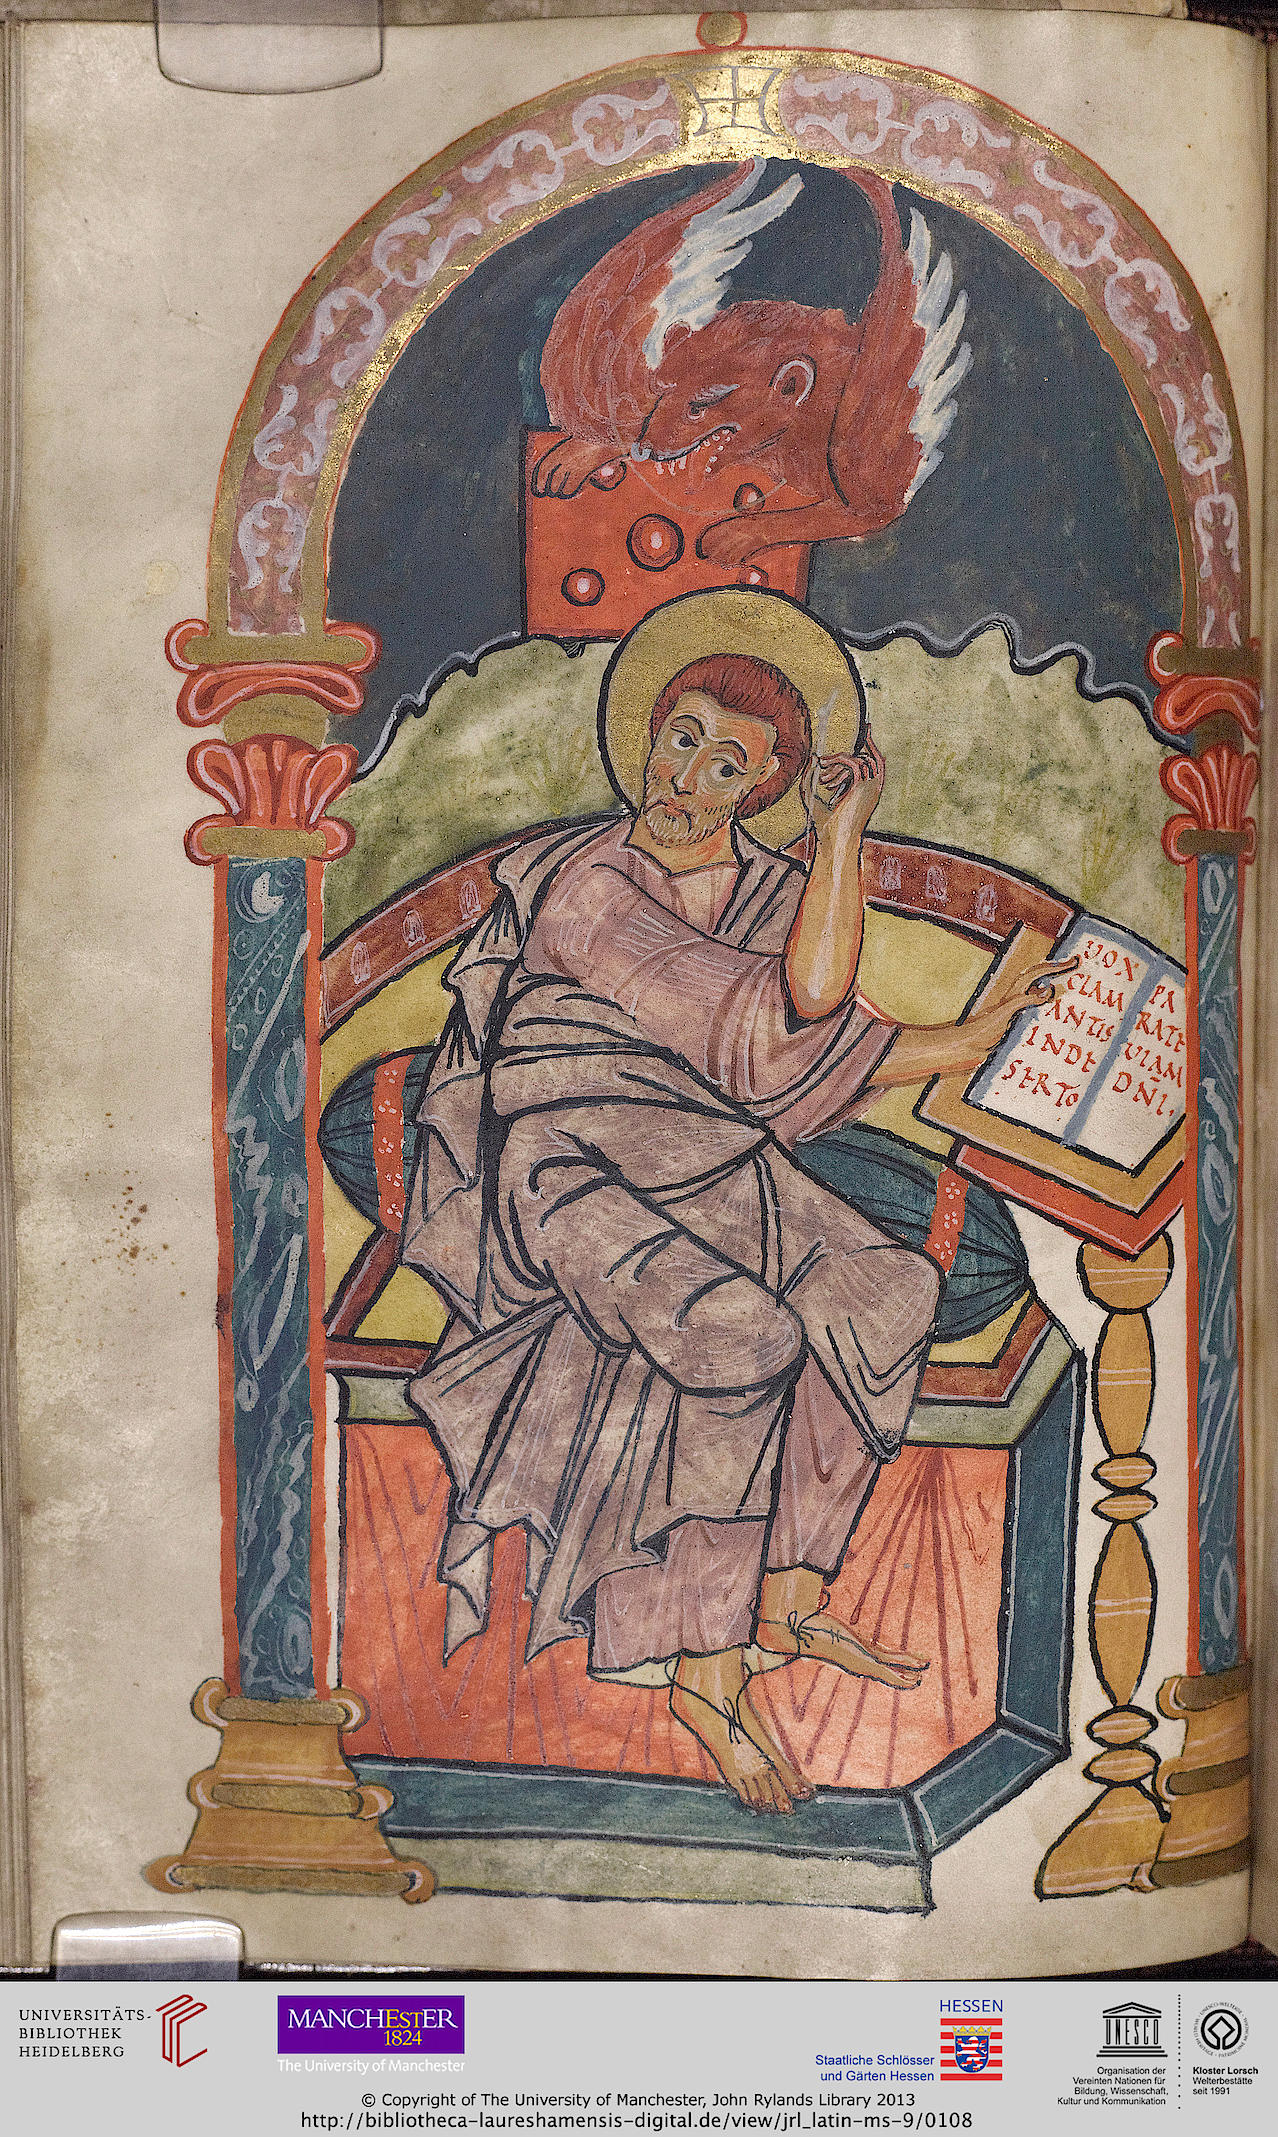 VOX
CLAM
ANTIS
INDE
SERTO
PA
RATE
VIAM
DÑI.
UNIVERSITÄTS-
BIBLIOTHEK
HEIDELBERG
MANCHESTER
1824
The University of Manchester
HESSEN
Staatliche Schlösser
und Gärten Hessen
UNESCO
Organisation der
Vereinten Nationen für
Bildung, Wissenschaft,
Kultur und Kommunikation
Kloster Lorsch
Welterbestätte
seit 1991
© Copyright of The University of Manchester, John Rylands Library 2013
http://bibliotheca-laureshamensis-digital.de/view/jrl_latin-ms-9/0108